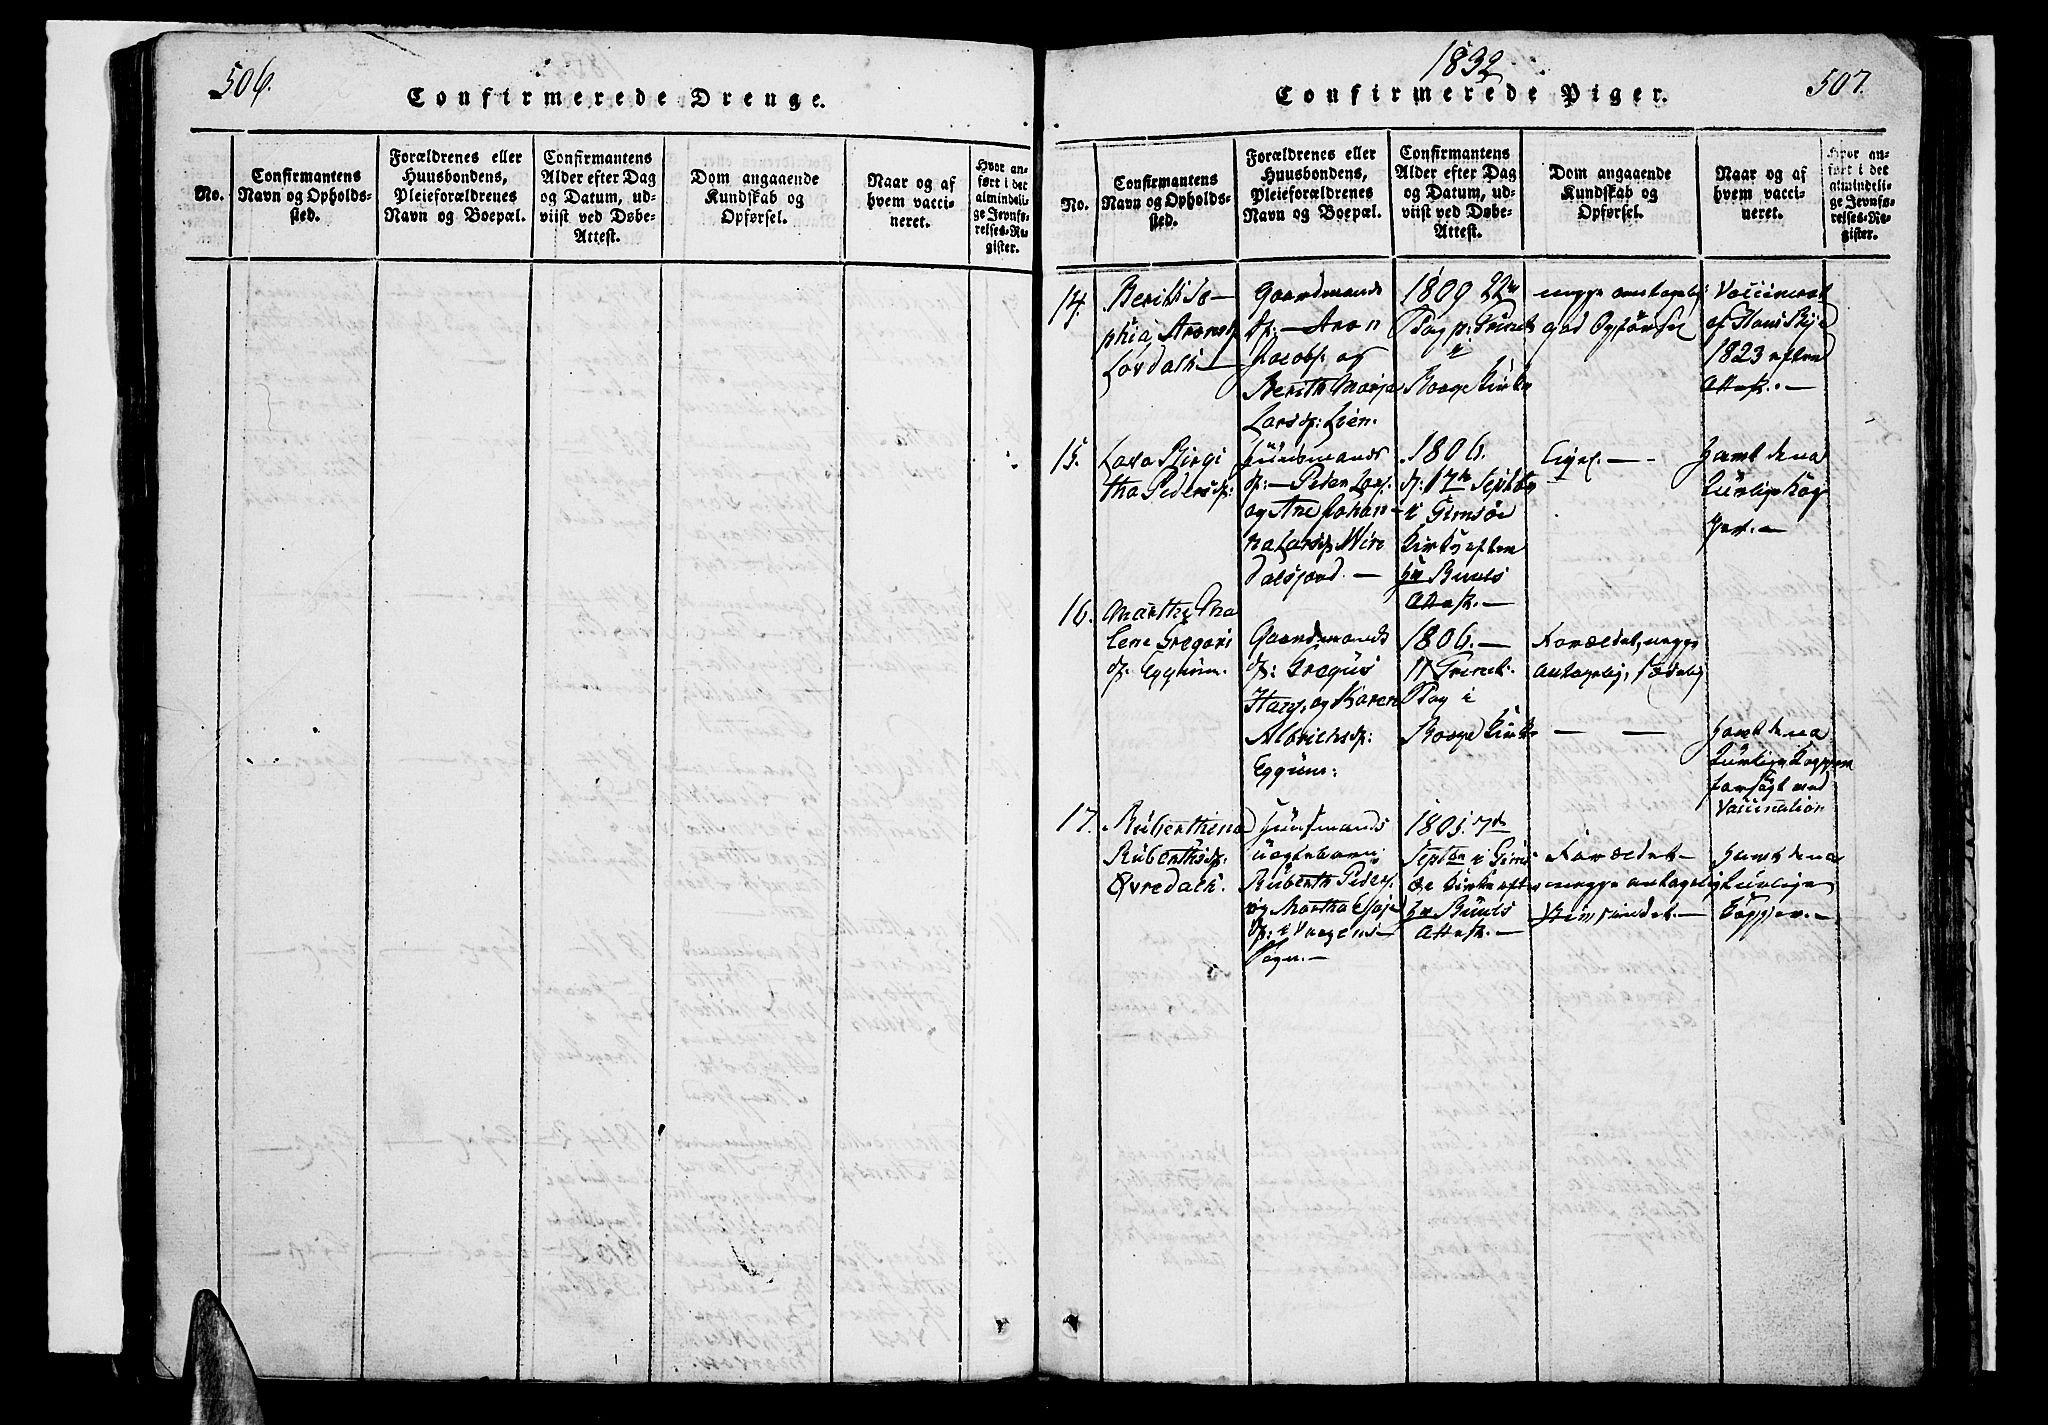 506.
Confirmerede Drenge.
No.
Confirmantens
Navn og Opholds-
sted.
Forældrenes eller
Huusbondens,
Pleieforældrenes
Navn og Boepæl.
Confirmantens
Alder efter Dag
og Datum, ud-
viist ved Døbe-
Attest.
Dom angaaende
Kundskab og
Opførsel.
Naar og af
hvem vacci-
neret.
Hvor an-
ført i det
almindeli-
ge Jevnfø-
relses-Re-
gister.
1832
507.
Confirmerede Piger.
No.
Confirmantens
Navn og Opholds-
sted.
Forældrenes eller
Huusbondens,
Pleieforældrenes
Navn og Boepæl.
Confirmantens
Alder efter Dag
og Datum, ud-
viist ved Døbe-
Attest.
Dom angaaende
Kundskab og
Opførsel.
Naar og af
hvem vacci-
neret.
Hvor an-
ført i det
almindeli-
ge Jevnfø-
relses-Re-
gister.
14.
Berith So-
phia Aronsd
Lovdalh
Gaardmands
D: Aron
Jacobs: og
Berith Marja
Larsd: Lien.
1809 22de
Dag p: Trinit
i
Borge Kirke
megge antagelig
god Opførsel
Vaccineret
af Hans Bye
1823 efter
Attest.
15.
Lava Birgi
tha Pedersd:
Huusmands
D: Peder Lars:
og Ane Johan-
na Larsd:
dalsfjord.
1806.
D: 17de Septbr
i Gimsøe
Kirke efter
Hr Buuls
Attest.
Ligel.
havt de na
turlige Kop
per.
16.
Marthe Ma
lene Gregori
D: Eggum.
Gaardmands
D: Gregus
Hans: og Karen
Albrichsd:
Eggum:
1806.
11 Trinit:
Dag i
Borge Kirke
Forældet, megge
antagelig, sædelig
havt de na
turlige Koppen
forsøgt med
Vaccination
17.
Ruberthena
Ruberthsd:
Øvredalh.
Huusmands
Ruberth Peders:
og Martha
D: i Vaagens
Sogn.
1805. 7de
Septbr i Gims
øe Kirke eft
Hr Buuls
Attest.
Forældet
megge antagelig
havt de na
turlige
Kopper.